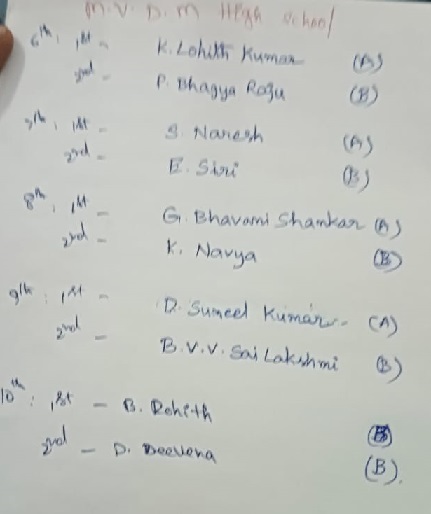 M.V.D.M High School
6th: 1st - K. Lohith Kumar (A)
2nd - P. Bhagya Raju (B)
7th: 1st - S. Naresh (A)
2nd - E. Siri (B)
8th: 1st - G. Bhavani Shankar (A)
2nd - K. Navya (B)
9th: 1st - D. Suneel Kumar - (A)
2nd - B.V.V. Sai Lakshmi (B)
10th: 1st - B. Rohith (B)
2nd - D. Deevena (B).